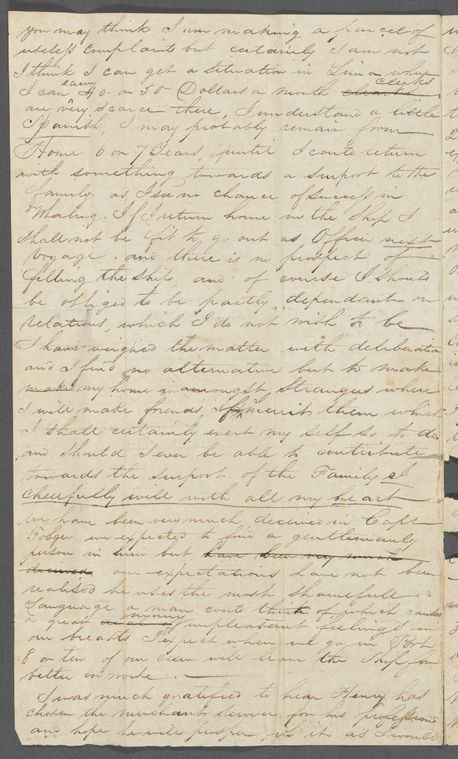 you may think I am making a parcel of
useless complaints but certainly I am not
I think I can get a situation in Lima where
clerks
I can earn 40. or 50 Dollars a month
are very scarce there, I understand a little
Spanish, I may probably remain from
Home 6 or 7 Years, until I could return
with something towards a support to the
family as I see no chance of success in
Whaling. If I return home in the Ship I
shall not be fit to go out as Officer next
Voyage. and there is no prospect of
filling the ship and of course I should
be obliged to be partly dependent on
relations, which I do not wish to be
I have weighed the matter with deliberation
and I find no alternative but to make
make my home amongst Strangers where
I will make friends, if I merit them which
I shall certainly exert my self so to do
and should I ever be able to contribute
towards the support of the Family I
cheerfully will with all my heart
we have been very much deceived in Capt
Folger we expected to find a gentlemanly
person in him but have been very much
deceived our expectations have not been
realised he uses the most shameful
Language a man could think of which causes
a great many unpleasant feelings in
our breasts I expect when we go in Port
8 or ten of our crew will leave the Ship for
better or worse. —
I was much gratified to hear Henry has
chosen the merchant service for his profession
and hope he will prosper, as it as I would